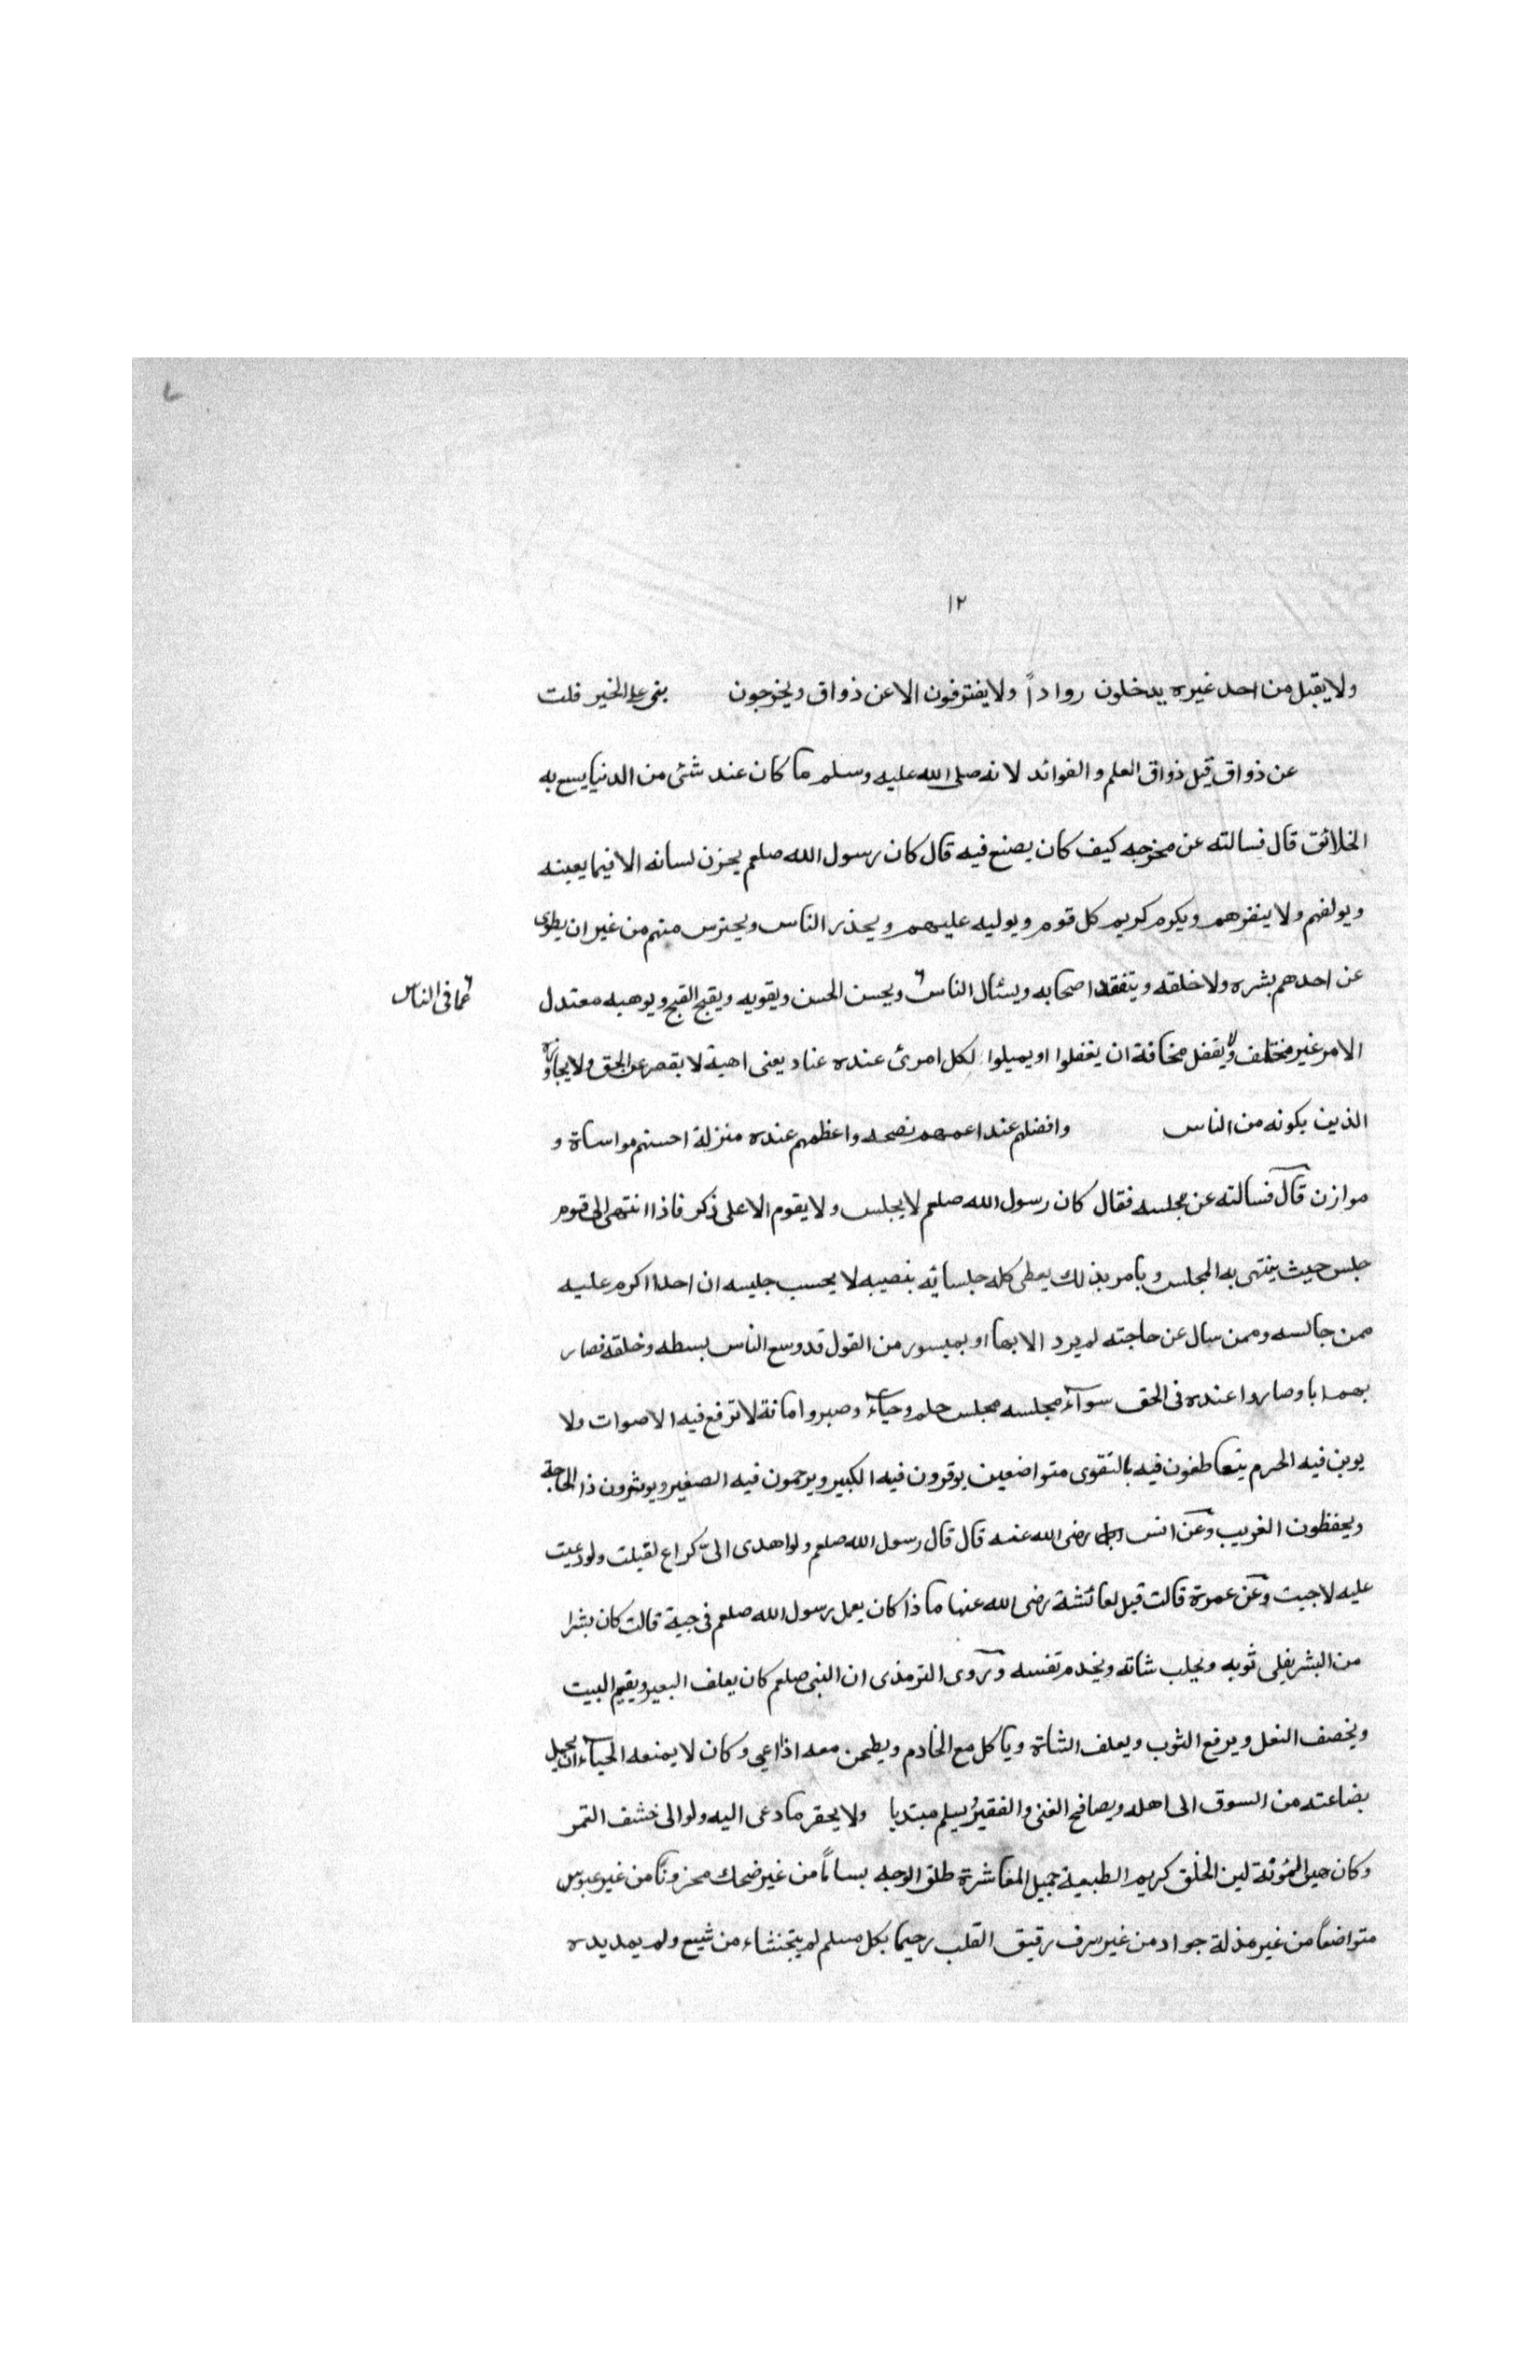 ١٢
ولا يقبل من احد غيره يدخلون رواداً ولا يفترقون الا عن ذواق ويخرجون يغى على الخير قلت
عن ذواق قيل ذواق العلم والفوائد لانه صلى الله عليه وسلم ما كان عند شئ من الدنيا يسع به
الخلائق قال فسالته عن مخرجه كيف كان يصنع فيه قال كان رسول الله صلعم يحزن لسانه الا فيما يعينه
ويولفهم ولا ينفرهم ويكرم كريم كل قوم ويوليه عليهم ويحذر الناس ويحترس منهم من غير ان يطوى
عن احدهم بشره ولا خلقه ويتفقد اصحابه ويسئال الناس ويحسن الحسن ويقويه ويقبح القبح ويوهيه معتدل
عما فى الناس
الامر غير مختلف ولا يغفل مخافة ان يغفلوا او يميلوا لكل امرئ عنده عناد يعنى اهبة لا يقصر عن الحق ولا يجاوزه
الذين يكونه من الناس وافضلهم عند اعمهم نصحه واعظمهم عنده منزلة احسنهم مواساة و
موازن قال فسالته عن مجلسه فقال كان رسول الله صلعم لا يجلس ولا يقوم الا على ذكر فاذا انتهى الى قوم
جلس حيث ينتهى به المجلس ويامر بذلك يعطى كله جلسائه بنصيبه لا يحسب جليسه ان احدا اكرم عليه
ممن جالسه وممن سال عن حاجته لم يرد الا بها او بميسور من القول قد وسع الناس بسطه وخلقه فصار
بهم ابا وصاروا عنده فى الحق سوآء مجلسه مجلس حلم وحيآء وصبر وامانة لا ترفع فيه الاصوات ولا
يوبن فيه الحرم يتعاطفون فيه بالتقوى متواضعين يوقرون فيه الكبير ويرحمون فيه الصغير ويوثرون ذا الحاجة
ويحفظون الغريب وعن انس رضى الله عنه قال قال رسول الله صلعم ولو اهدى الىّ كراع لقبلت ولو دعيت
عليه لاجبت وعن عمرة قالت قيل لعائشة رضى الله عنها ما ذا كان يعمل رسول الله صلعم فى جبة قالت كان بشرا
من البشر يفلى ثوبه ويحلب شاته ويخدم نفسه وروى الترمذى ان النبى صلعم كان يعلف البعير ويقيم البيت
ويخصف النعل ويرفع الثوب ويعلف الشاة وياكل مع الخادم ويطحن معه اذا عى وكان لا يمنعه الحيآء ان يحمل
بضاعته من السوق الى اهله ويصافح الغنى والفقير يسلم مبتديا ولا يحقر ما دعى اليه ولو الى خشف التمر
وكان هين المؤنة لين الخلق كريم الطبيعة جميل المعاشرة طلق الوجه بساماً من غير ضحك محزوناً من غير عبوس
متواضعاً من غير مذلة جواد من غير سرف رقيق القلب رحيما بكل مسلم لم يتجشاء من شبع ولم يمد يده